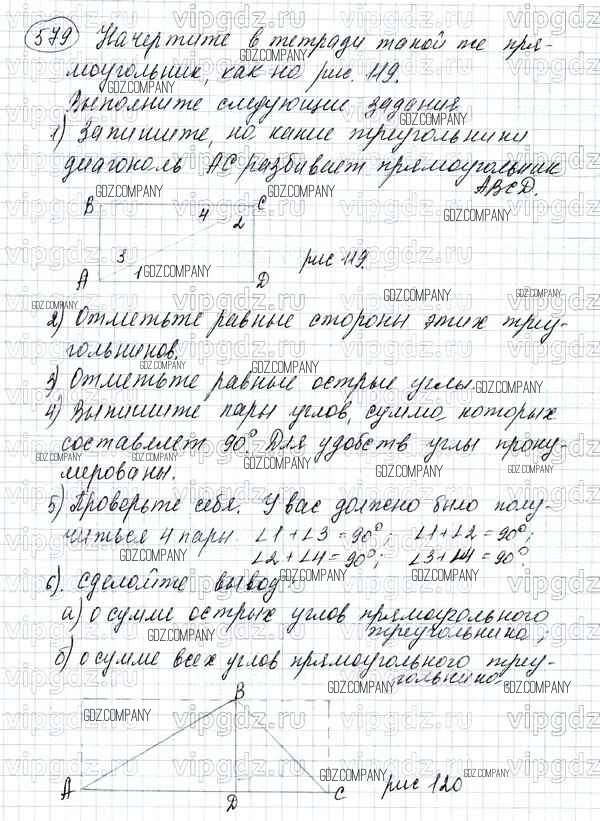 579 Начертите в тетради такой же пря-
моугольник, как на рис. 119.
Выполните следующие задания
1) Запишите, на какие треугольники
диагональ АС разбивает прямоугольник
ABCD.
B 4 C
2
3
A 1 D
рис 119.
2) Отметьте равные стороны этих треу-
гольников.
3) Отметьте равные острые углы.
4) Выпишите пары углов, сумма которых
составляет 90°. Для удобств углы прону-
мерованы.
5) Проверьте себя. У вас должно было полу-
читься 4 пары ∠1+∠3=90°; ∠1+∠2=90°;
∠2+∠4=90°; ∠3+∠4=90°.
6). Сделайте вывод:
а) о сумме острых углов прямоугольного
треугольника;
б) о сумме всех углов прямоугольного треу-
гольника.
B
A D C
рис 120